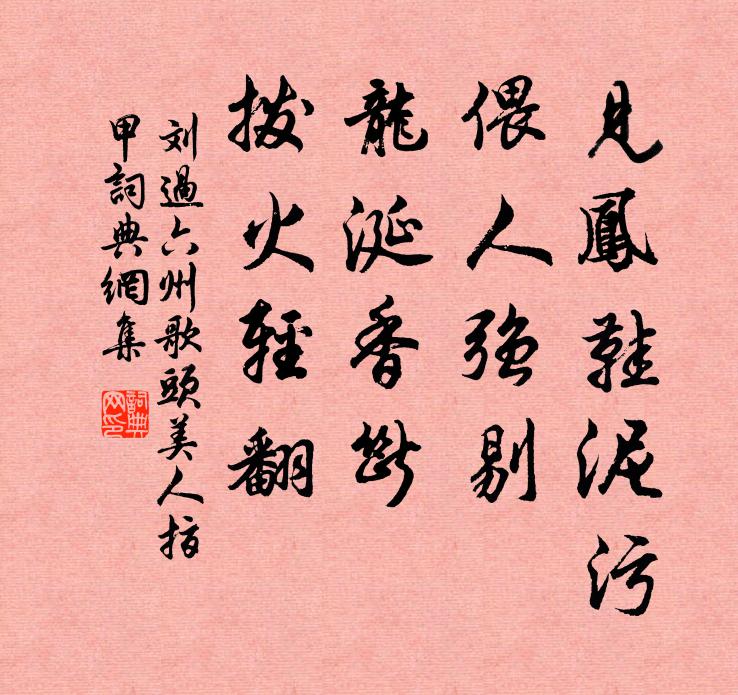 見鳳鞋泥污
偎人強剔
龍涎香斷
撥火輕翻
刘過六州歌頭美人指
甲詞典網集
詞典网印